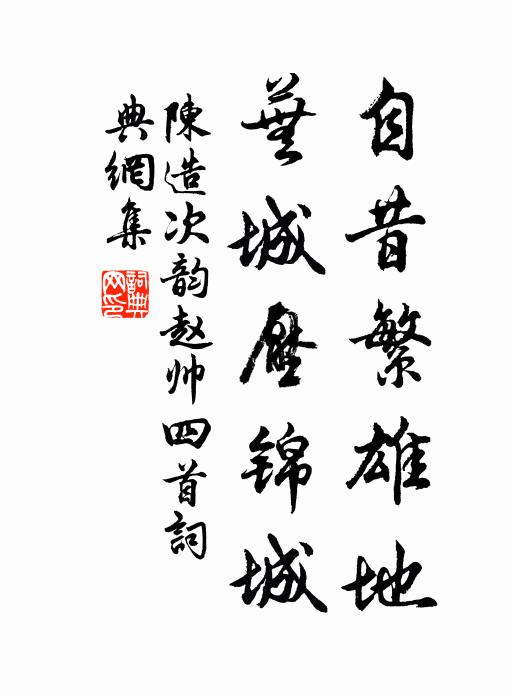 自昔繁雄地
蕪城壓锦城
陳造次韵赵帅四首詞
典網集
詞典網印